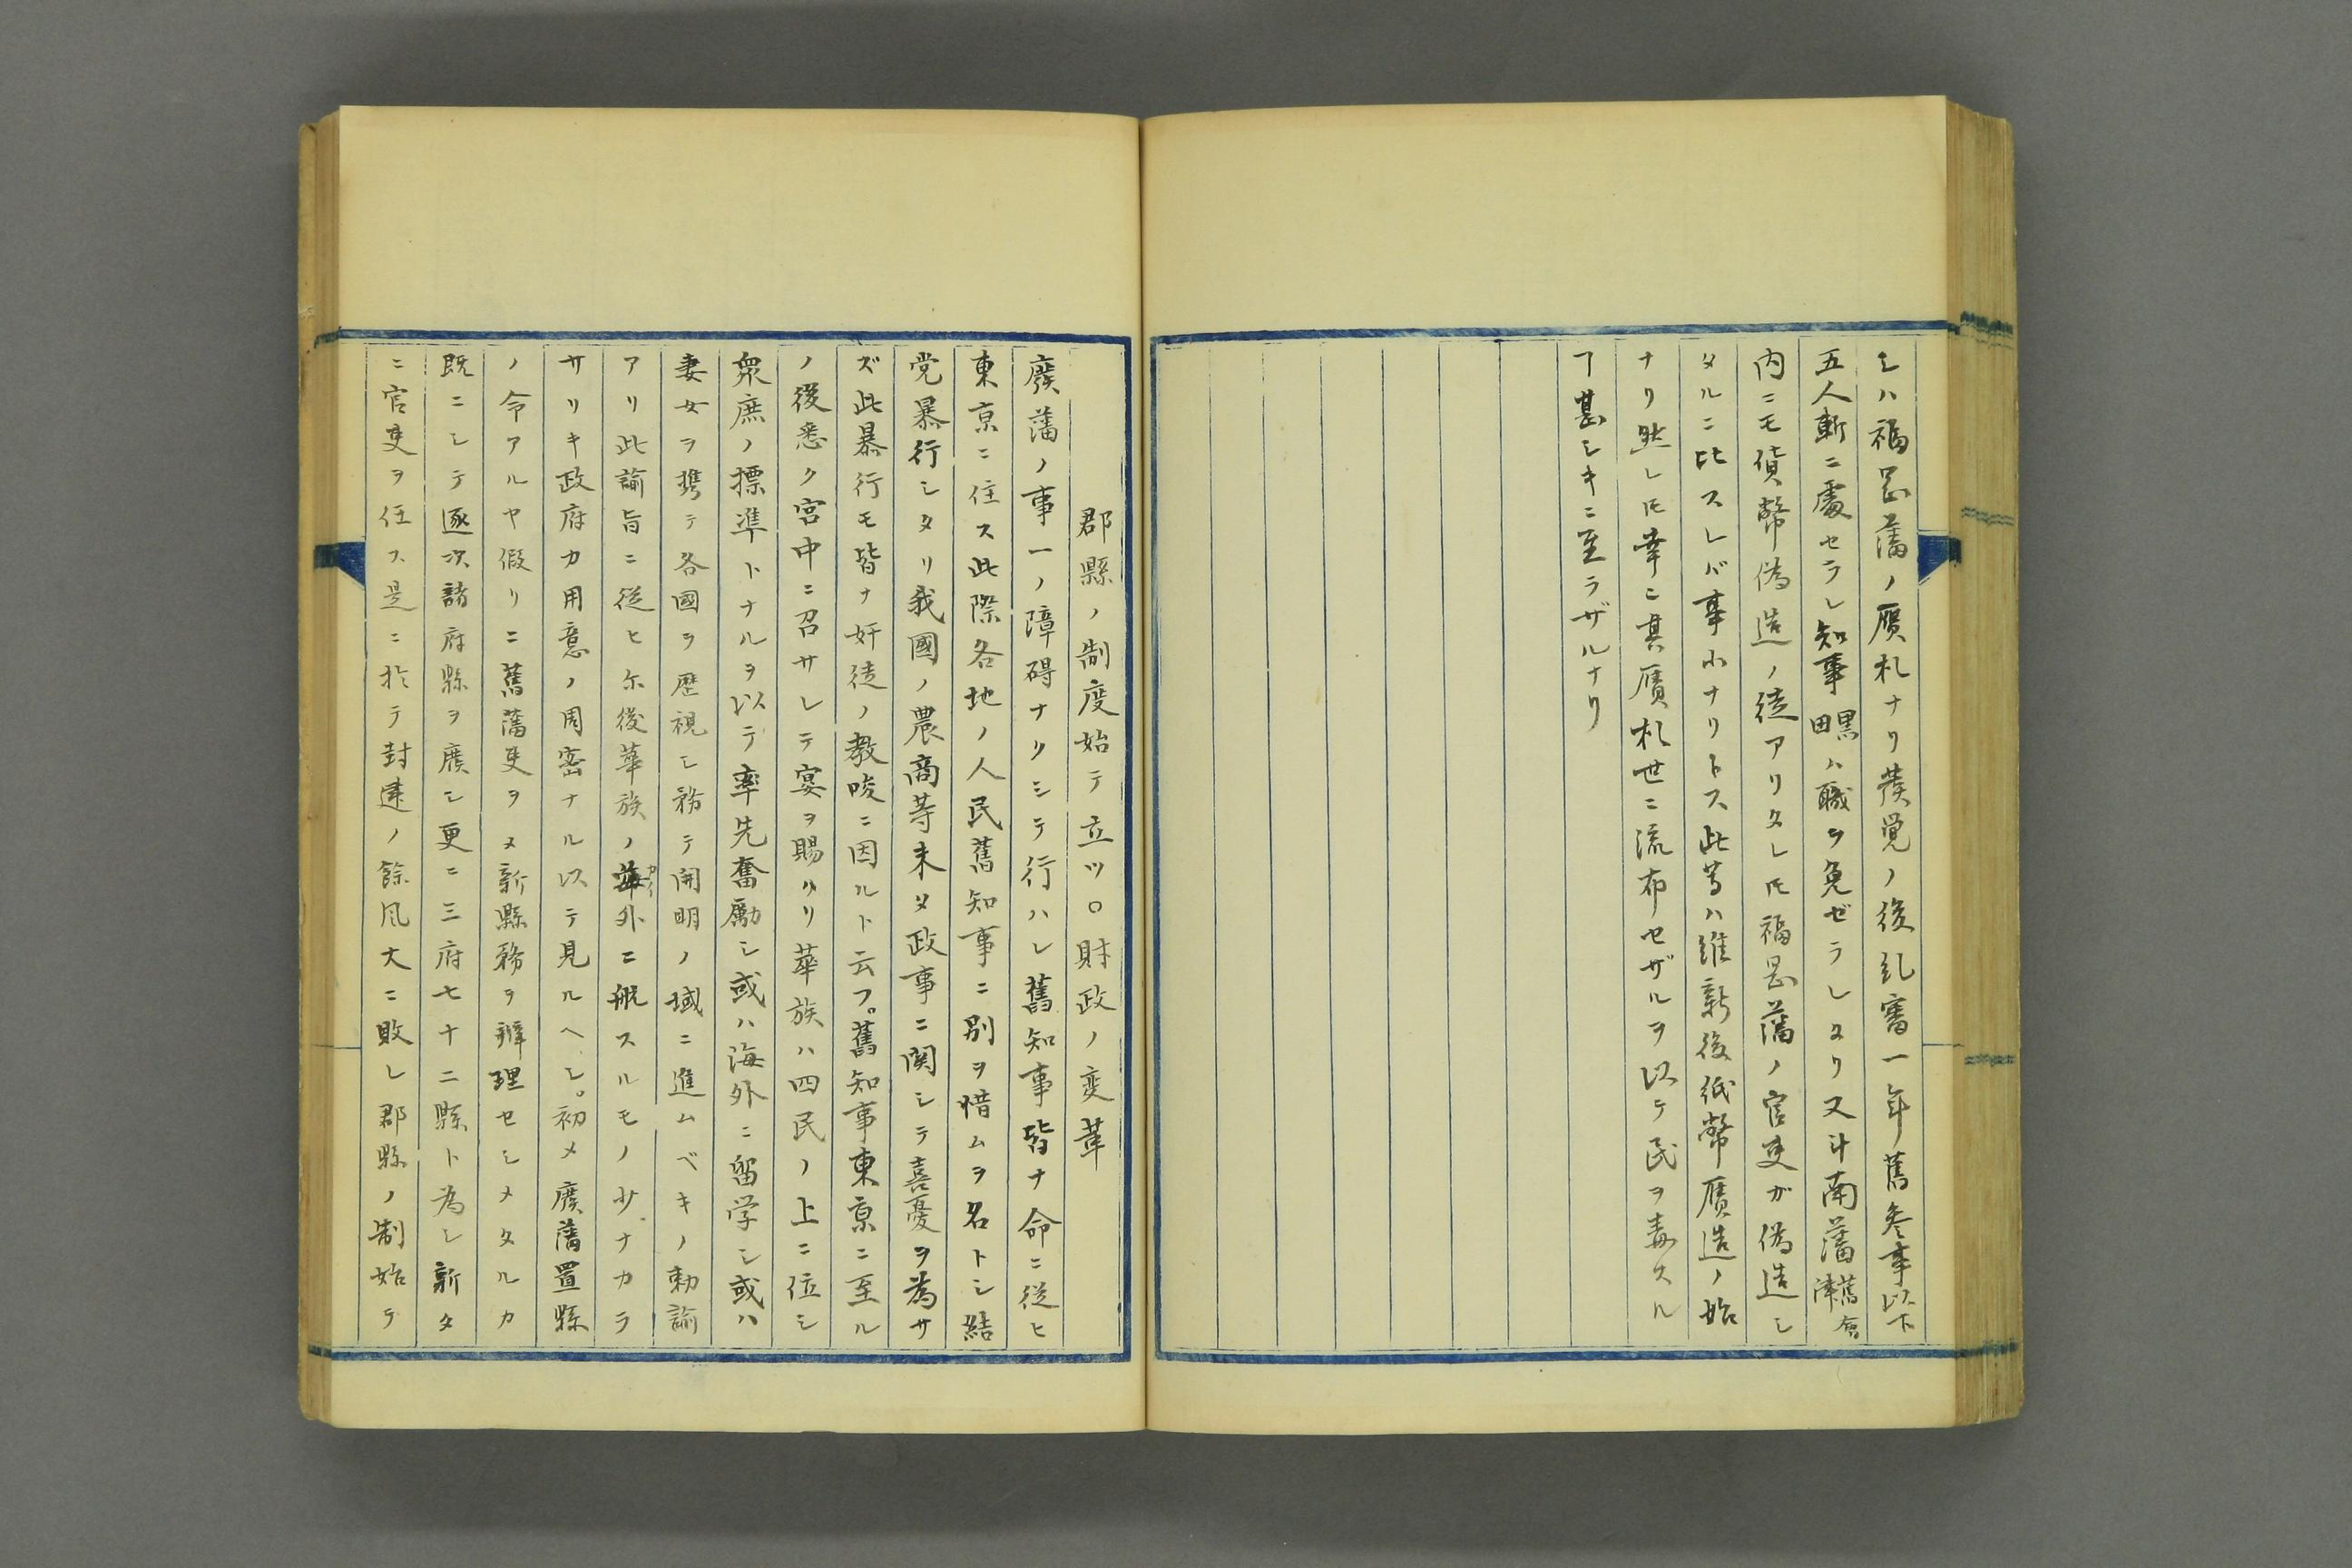 シハ福岡藩ノ贋札ナリ発覚ノ後糺審一年舊参事以下
五人斬ニ處セラレ知事黒田ハ職ヲ免ゼラレタリ又斗南藩舊會津
内ニモ貨幣偽造ノ徒アリタレ𪜈福岡藩ノ官吏ガ偽造シ
タルニ比スレバ事小ナリトス此等ハ維新後紙幣贋造ノ始
ナリ然レ𪜈幸ニ其贋札世ニ流布セザルヲ以テ民ヲ毒スル
ヿ甚シキニ至ラザルナリ
郡縣ノ制度始テ立ツ○財政ノ変革
廢藩ノ事一ノ障碍ナクシテ行ハレ舊知事皆ナ命ニ従ヒ
東京ニ住ス此際各地ノ人民舊知事ニ別ヲ惜ムヲ名トシ結
党暴行シタリ我國ノ農商等未タ政事ニ関シテ喜憂ヲ為サ
ズ此暴行モ皆ナ奸徒ノ教唆ニ因ルト云フ。舊知事東京ニ至ル
ノ後悉ク宮中ニ召サレテ宴ヲ賜ハリ華族ハ四民ノ上ニ位シ
衆庶ノ摽準トナルヲ以テ率先奮勵シ或ハ海外ニ留学シ或ハ
妻女ヲ携テ各國ヲ歴視シ務テ開明ノ域ニ進ムベキノ勅諭
アリ此諭旨ニ従ヒ尓後華族ノ海外ニ航スルモノ少ナカラ
サリキ政府カ用意ノ周密ナル以テ見ルヘシ。初メ廢藩置縣
ノ令アルヤ假リニ舊藩吏ヲメ新縣務ヲ辨理セシメタルカ
既ニシテ逐次諸府縣ヲ廢シ更ニ三府七十二縣ト為シ新タ
ニ官吏ヲ任ス是ニ於テ封建ノ餘風大ニ敗レ郡縣ノ制始テ